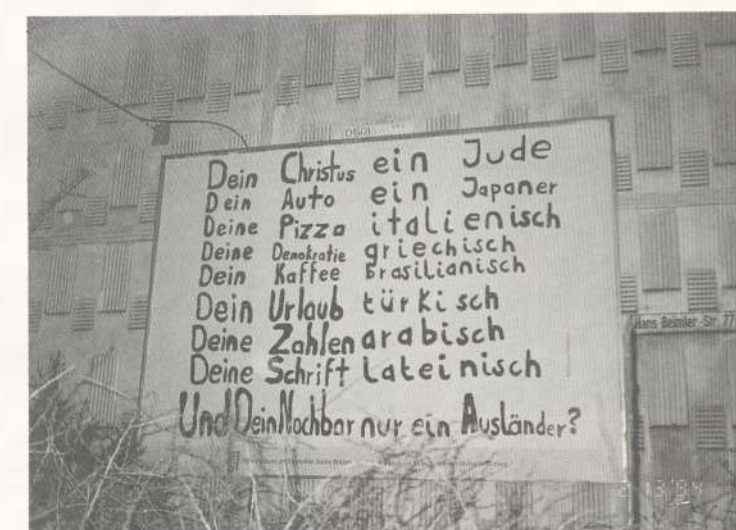 Dein Christus ein Jude
Dein Auto ein Japaner
Deine Pizza italienisch
Deine Demokratie griechisch
Dein Kaffee Brasilianisch
Dein Urlaub türkisch
Deine Zahlen arabisch
Deine Schrift Lateinisch
Und Dein Nachbar nur ein Ausländer?
Hans Beimler-Str. 77